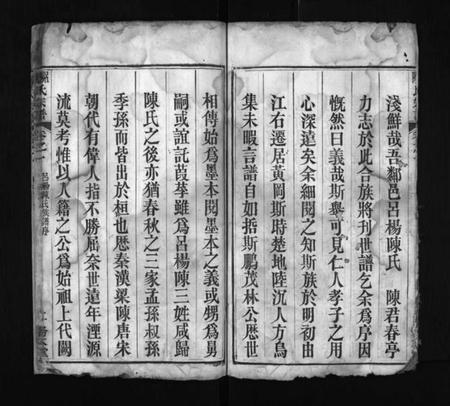 淺鮮哉吾鄰邑呂楊陳氏 陳君春亭
力志於此合族將刋世譜乞余爲序因
慨然曰義哉斯舉可見仁人孝子之用
心深遠矣余細閱之知斯族於明初由
江右遷居黃岡斯時楚地陸沉人方鳥
集未暇言譜自如捂斯鵬茂林公歴世
相傳始爲墨本閱墨本之義或甥爲舅
嗣或誼託葭莩雖爲呂楊陳三姓咸歸
陳氏之後亦猶春秋之三家孟孫叔孫
季孫而皆出於桓也歴秦漢梁陳唐宋
朝代有偉人指不勝屈奈世遠年湮源
流莫考惟以人籍之公爲始祖上代闕
呂楊陳氏族譜序